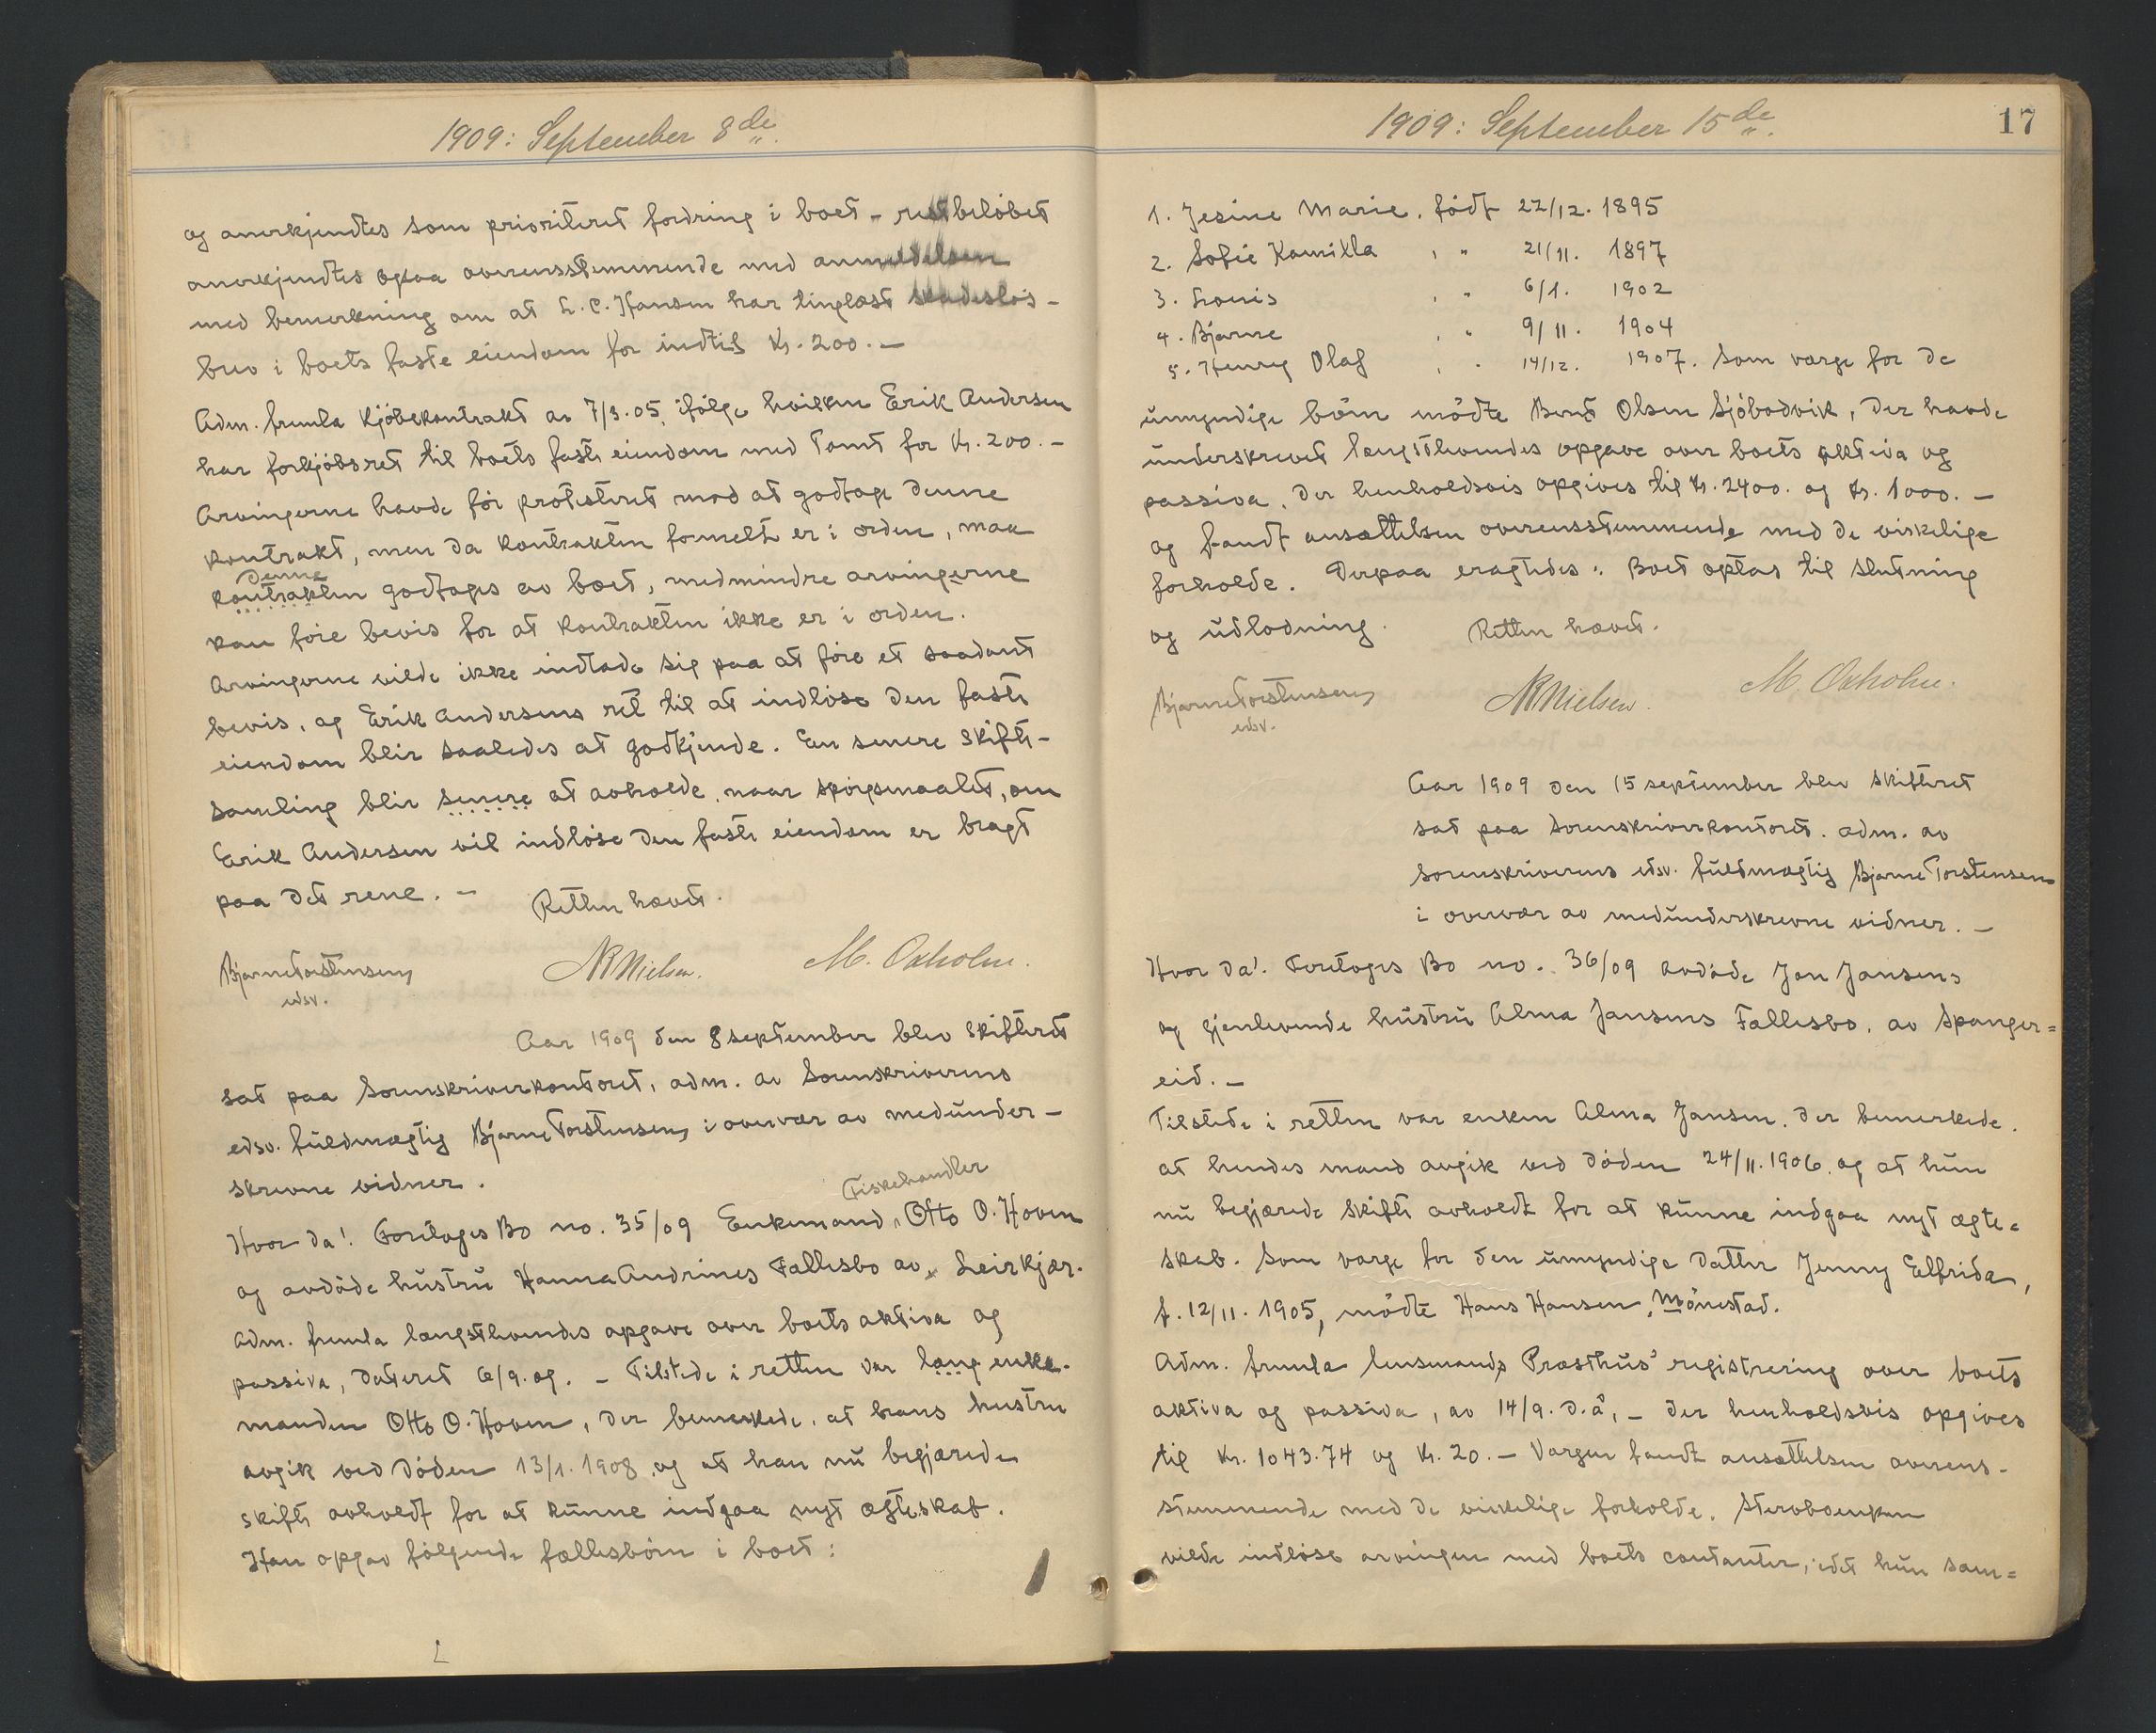 1909: September 8de
og anerkjendtes som prioriteret fordring i boet - restbeløbet
anerkjendtes ogsaa overensstemmende med anmeldelsen
med bemerkning om at L. C. Hansen har tinglæst skadesløs-
brev i boets faste eiendom for indtil Kr. 200.-
Adm. fremla kjøbekontrakt av 7/3.05, ifølge hvilken Erik Andersen
har forkjøbsret til boets faste eiendom med Tomt for Kr. 200.-
Arvingerne havde før protesteret mod at godtage denne
kontrakt, men da kontrakten formelt er i orden, maa
denne
kontrakten godtages av boet, medmindre arvingerne
kan føre bevis for at kontrakten ikke er i orden.
Arvingerne vilde ikke indlade sig paa at føre et saadant
bevis, og Erik Andersens ret til at indløse den faste
eiendom blir saaledes at godkjende. En senere skifte-
samling blir senere at avholde, naar spørgsmaalet, om
Erik Andersen vil indløse den faste eiendom er bragt
paa det rene. - Retten hævet.
Bjarne Torstensen NR Nielsen. M. Oxholm.
edsv.
Aar 1909 den 8 september blev skifteret
sat paa Sorenskriverkontoret, adm. av Sorenskriverens
edsv. fuldmægtig Bjarne Torstensen i overvær av medunder-
skrevne vidner.
Fiskehandler
Hvor da! Foretoges Bo no. 35/09 Enkemand, Otto O. Hoven
og avdøde hustru Hanna Andrines Fællesbo av Leirkjær.
Adm. fremla længstlevendes opgave over boets aktiva og
passiva, dateret 6/9.09. - Tilstede i retten var læng enke-
manden Otto O. Hoven, der bemerkede, at hans hustru
avgik ved døden 13/1.1908, og at han nu begjærede
skifte avholdt for at kunne indgaa nyt ægteskab.
Han opgav følgende fællesbørn i boet:
1909: September 15de
17
1. Jesine Marie, født 22/12. 1895
2. Sofie Kamilla , " 21/11. 1897
3. Lovis , " 6/1. 1902
4. Bjarne , " 9/11. 1904
5. Henry Olaf , " 14/12. 1907. Som værge for de
umyndige børn mødte Bernt Olsen Sjøbodvik, der havde
underskrevet længstlevendes opgave over boets aktiva og
passiva, der henholdsvis opgives til Kr. 2400. og Kr. 1000. -
og fandt ansættelsen overensstemmende med de virkelige
forholde. Derpaa eragtedes: Boet optas til slutning
og utlodning. Retten hævet.
Bjarne Torstensen NR Nielsen. M. Oxholm.
edsv.
Aar 1909 den 15 september blev skifteret
sat paa Sorenskriverkontoret. adm. av
Sorenskriverens edsv. fuldmægtig Bjarne Torstensen
i overvær av medunderskrevne vidner. -
Hvor da! Foretoges Bo no. 36/09 avdøde Jan Jansens
og gjenlevende hustru Alma Jansens Fællesbo, av Spanger=
eid. -
Tilstede i retten var enken Alma Jansen, der bemerkede,
at hendes mand avgik ved døden 24/11.1906, og at hun
nu begjærede skifte avholdt for at kunne indgaa nyt ægte=
skab. Som værge for den umyndige datter Jenny Elfrida,
f. 12/11. 1905, mødte Hans Hansen, Mønestad.
Adm. fremla lensmands Præsthus' registrering over boets
aktiva og passiva, av 14/9. d.å, - der henholdsvis opgives
til Kr. 1043.74 og Kr. 20. - Værgen fandt ansættelsen overens-
stemmende med de virkelige forholde. Stervboenken
vilde indløse arvingen med boets contanter, idet hun sam=